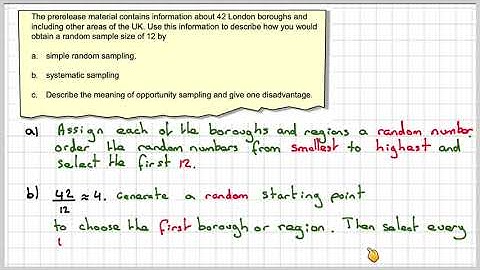 The prerelease material contains information about 42 London boroughs and
including other areas of the UK. Use this information to describe how you would
obtain a random sample size of 12 by
a. simple random sampling,
b. systematic sampling
c. Describe the meaning of opportunity sampling and give one disadvantage.
a) Assign each of the boroughs and regions a random number
order the random numbers from smallest to highest and
select the first 12.
b) 42/12 ≈ 4. Generate a random starting point
to choose the first borough or region. Then select every